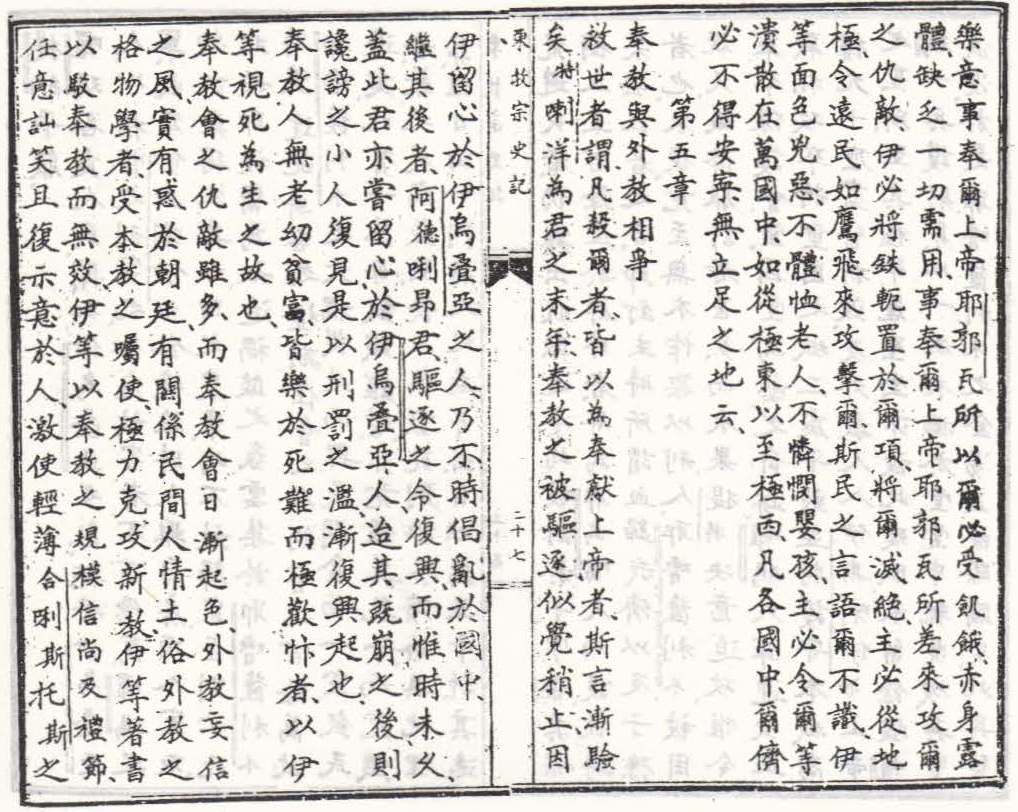 樂意事奉爾上帝耶郭瓦所以爾必受飢餓、赤身露
體、缺乏一切需用、事奉爾上帝耶郭瓦所差來攻爾
之仇敵、伊必將鉄軛置於爾項、將爾滅絕、主必從地
極令遠民如鷹飛來攻擊爾、斯民之言語、爾不識、伊
等面色兇惡、不體恤老人、不憐憫嬰孩、主必令爾等
潰散在萬國中、如從極東以至極西、凡各國中、爾儕
必不得安寧、無立足之地云、
第五章
奉教與外教相爭
救世者謂凡殺爾者、皆以為奉獻上帝者、斯言漸驗
矣、特喇洋為君之末年、奉教之被驅逐、似覺稍止、因
東教宗史記
三十七
伊留心於伊烏疊亞之人、乃不時倡亂於國中、
繼其後者、阿德唎昻君、驅逐之令復興、而惟時未久、
蓋此君亦嘗留心於伊烏疊亞人、迨其旣崩之後、則
讒謗之小人復見、是以刑罰之濫、漸復興起也、
奉教人無老幼貧富、皆樂於死難而極歡忭者、以伊
等視死為生之故也、
奉教會之仇敵雖多、而奉教會日漸起色、外教妄信
之風、實有惑於朝廷、有關係民間人情土俗、外教之
格物學者、受本教之囑使、極力克攻新教、伊等著書
以駁奉教而無效、伊等以奉教之規模信尚及禮節、
任意訕笑、且復示意於人、激使輕薄、合唎斯托斯之